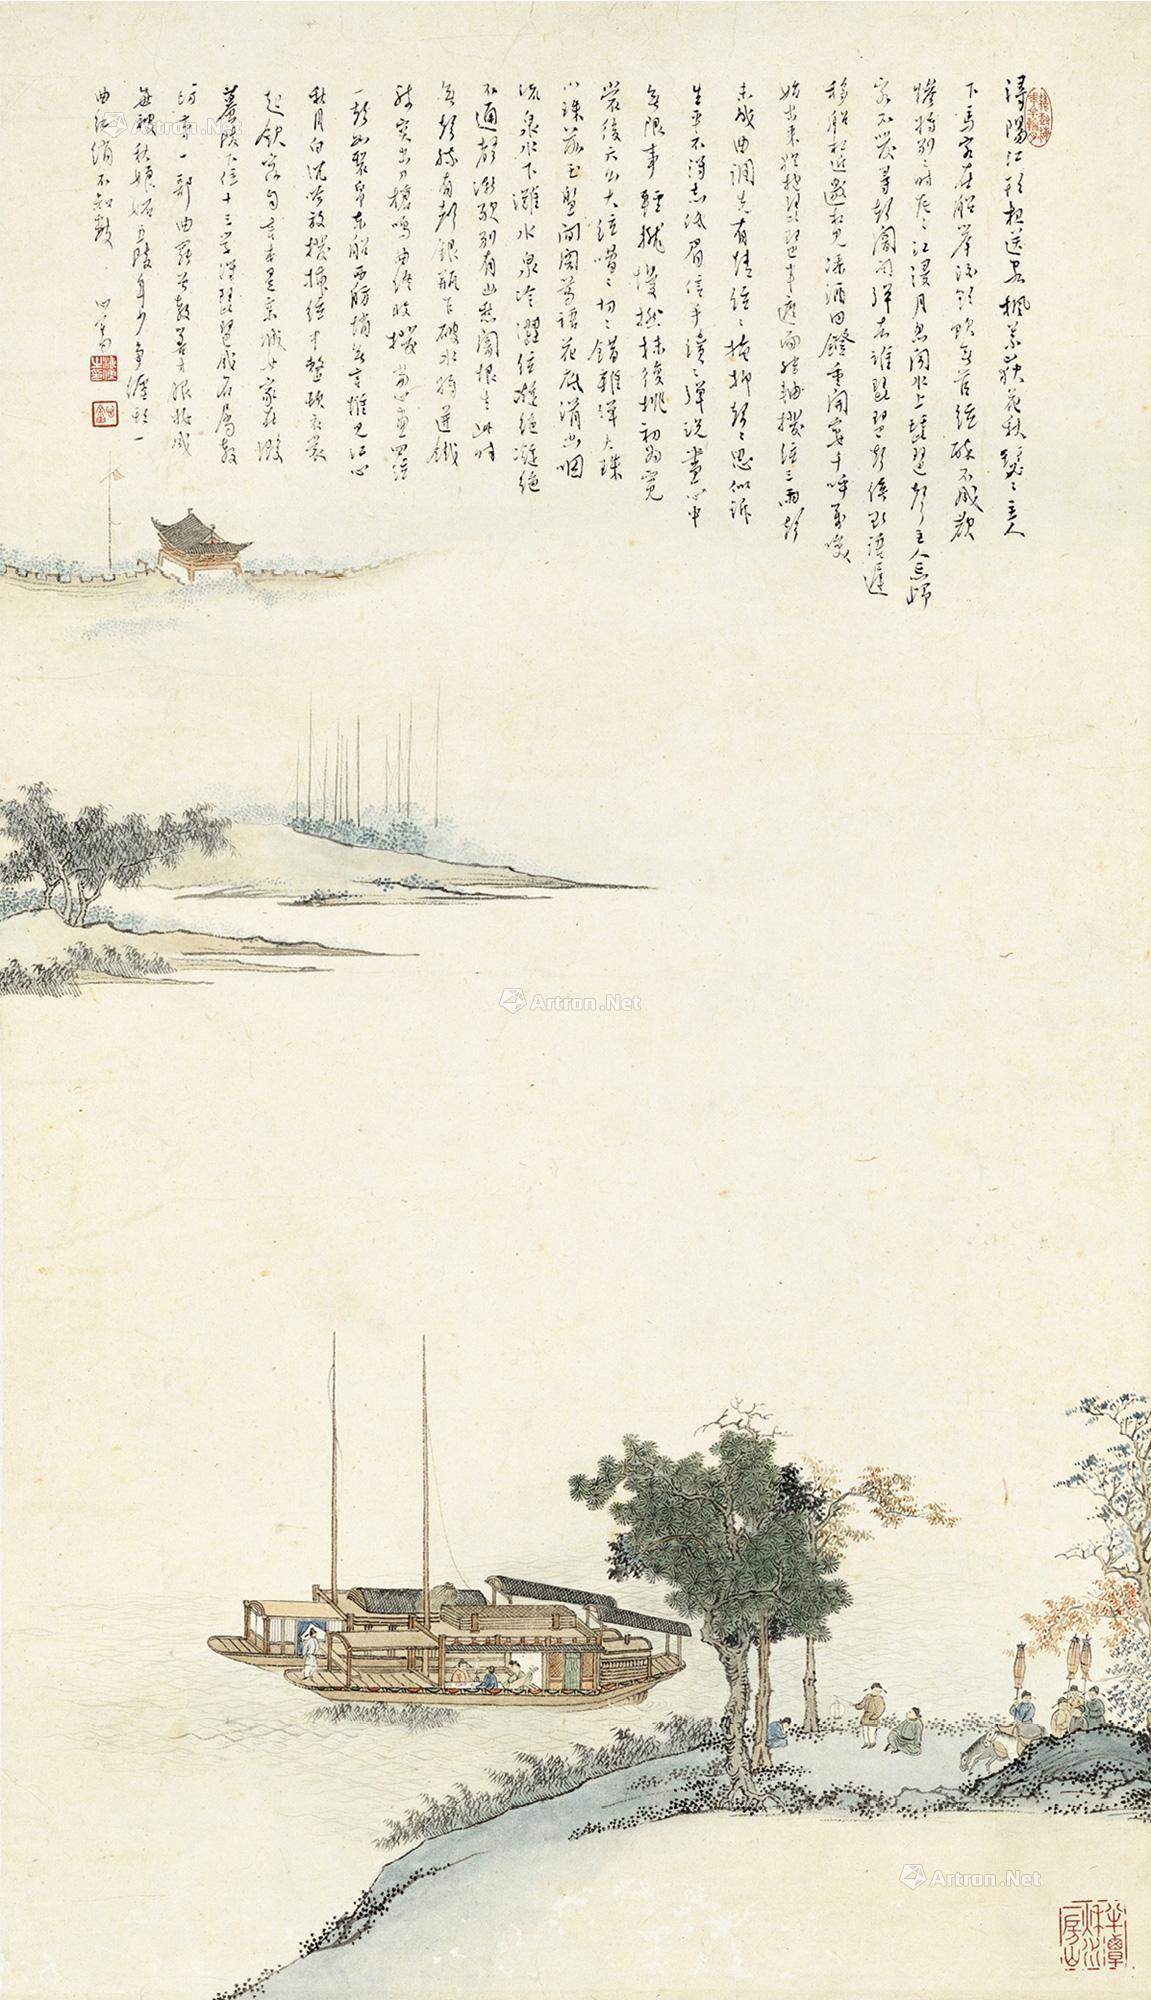 潯陽江頭夜送客楓葉荻花秋瑟〻主人
下馬客在船舉酒欲飲無管絃醉不成歡
慘將別〻時茫〻江浸月忽聞水上琵琶聲主人忘歸
客不發尋聲闇問彈者誰琵琶聲停欲語遲
移船相近邀相見添酒回鐙重開宴千呼萬喚
始出來猶抱琵琶半遮面轉軸撥絃三兩聲
未成曲調先有情絃〻掩抑聲〻思似訴
生平不得志低眉信手續〻彈說盡心中
無限事輕攏慢撚抹復挑初為霓
裳後六幺大絃嘈〻切〻錯雜彈大珠
小珠落玉盤間關鶯語花底滑幽咽
流泉水下灘水泉冷澀絃凝絕凝絕
不通聲漸歇別有幽愁闇恨生此時
無聲勝有聲銀瓶乍破水漿迸鐵
騎突出刀槍鳴曲終收撥當心畫四絃
一聲如裂帛東船西舫悄無言惟見江心
秋月白沈吟放撥插絃中整頓衣裳
起斂容自言本是京城女家在蝦
蟇陵下住十三學得琵琶成名屬教
坊第一部曲罷曾教善才服妝成
每被秋娘妬五陵年少爭纏頭一
曲紅綃不知數 心畬
半潭秋水一房山
Artron.Net
Artron.Net
Artron.Net
Artron.Net